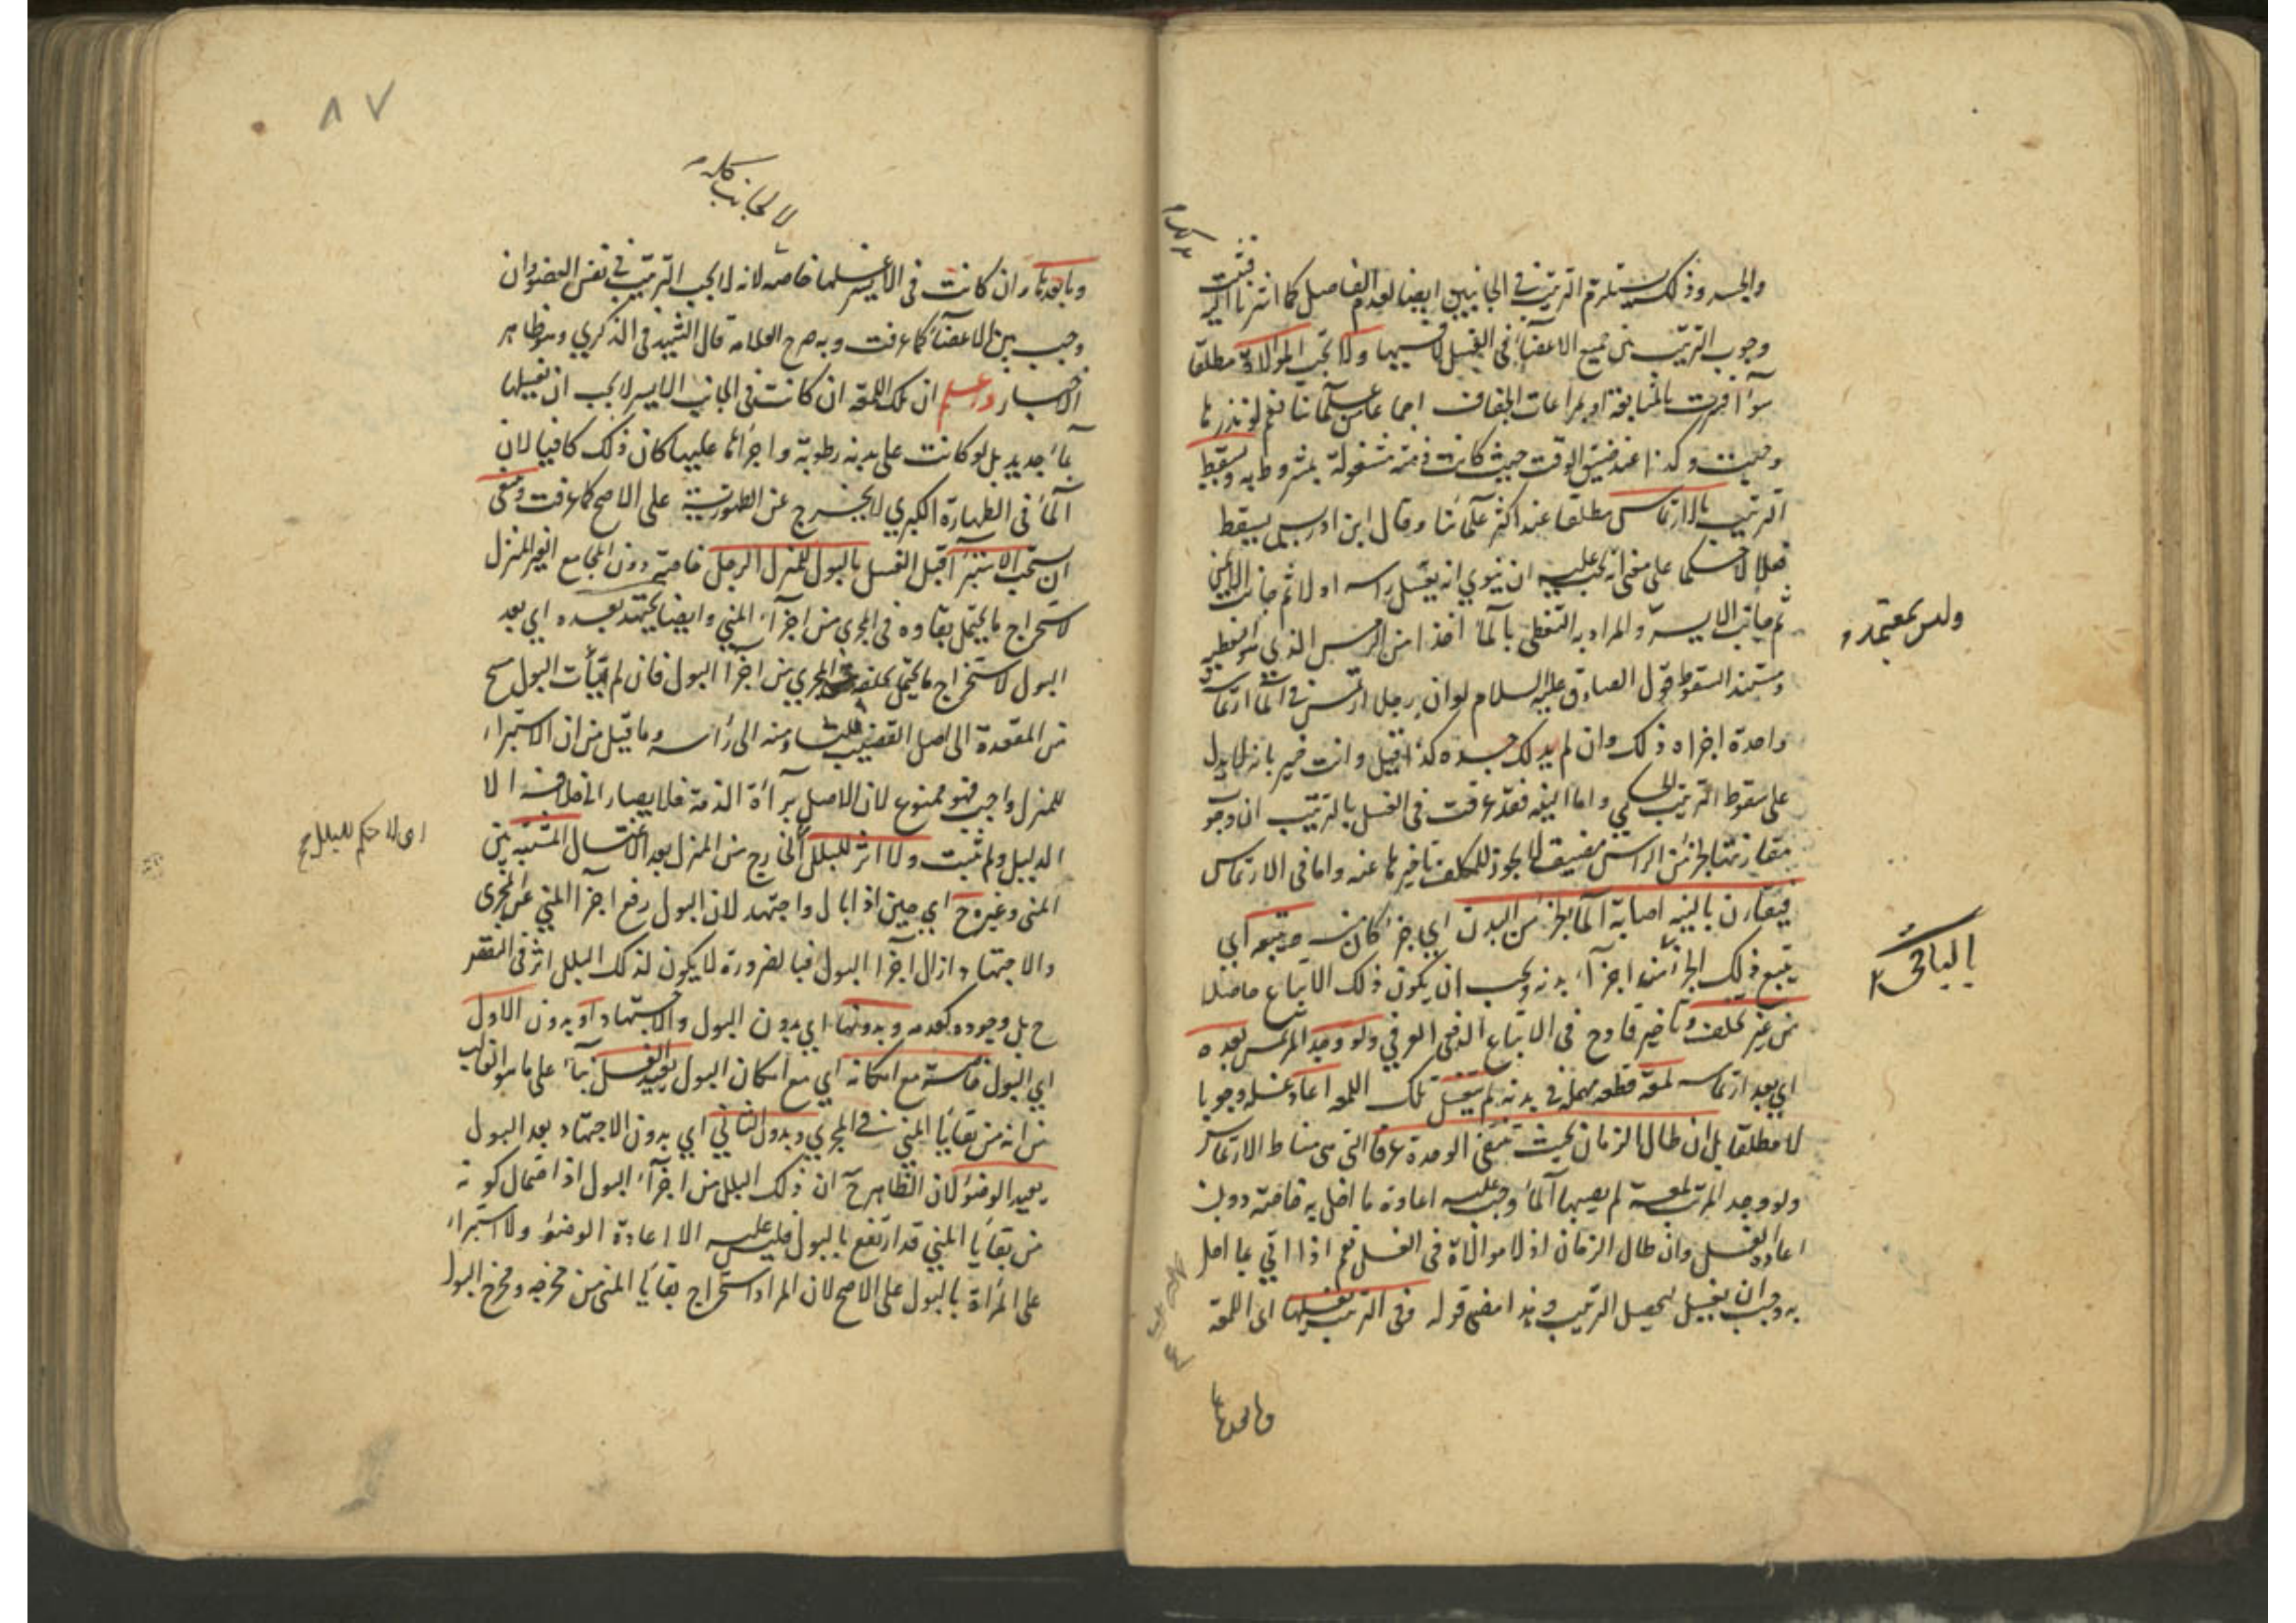 والجسد وذلك يستلزم الترتيب في الجانبين ايضا لعدم الفاصل كما اشرنا اليه فثبت
وجوب الترتيب بين جميع الاعضاء في الغسل لا فيها ولا تجب الموالاة مطلقا
سواء فسرت بالمتابعة او بمراعات الجفاف اجماعا من علمائنا نعم لو نذرها
وجبت وكذا عند ضيق الوقت حيث كانت ذمته مشغولة بمشروط به ويسقط
الترتيب بالارتماس مطلقا عند اكثر علمائنا وقال ابن ادريس يسقط
فعلا لا حكما على معنى انه يجب عليه ان ينوي انه يغسل راسه اولا ثم جانب الايمن
ثم جانب الايسر والمراد به التغطي بالماء اخذا من الرمس الذي هو التغطية
ومستند السقوط قول الصادق عليه السلام لو ان رجلا ارتمس في الماء ارتماسة
واحدة اجزاه ذلك وان لم يدلك جسده كذا قيل وانت خبير بانه لا يدل
على سقوط الترتيب الحكمي واما النية فقد عرفت في الغسل بالترتيب ان وجوب
مقارنتها بجزء من الراس مضيق لا يجوز للمكلف تاخيرها عنه واما في الارتماس
فيقارن بالنيه اصابة الماء بجزء من البدن اي جزء كان منه ويتبعه اي
يتبع ذلك الجزء من اجزاء بدنه ويجب ان يكون ذلك الاتباع حاصلا
من غير تخلف وتاخير قادح في الاتباع الدفعي العرفي ولو وجد المرتمس بعده
اي بعد ارتماسه لمعة قطعه مهملة في بدنه لم يغسل تلك اللمعه اعاد غسله وجوبا
لا مطلقا بل ان طال الزمان بحيث تنتفي الوحدة عرفا التي هي مناط الارتماس
ولو وجد المرتب لمعة لم يصبها الماء وجب عليه اعادة ما اخل به خاصة دون
اعادة الغسل وان طال الزمان اذ لا موالاة في الغسل نعم اذا اتي بما اخل
به وجب ان يغسل ليحصل الترتيب وهذا معنى قوله وفي الترتيب يغسلها اي اللمعة
وما بعدها
وليس بمعتمد
الباقي
٨٧
لا لجانب كله
وما بعدها وان كانت في الايسر غسلها خاصه لانه لا يجب الترتيب في نفس العضو وان
وجب بين الاعضاء كما عرفت وبه صرح العلامه قال الشهيد في الذكري وهو ظاهر
الاخبار واعلم ان تلك اللمعة ان كانت في الجانب الايسر لا يجب ان يغسلها
بماء جديد بل لو كانت على بدنه رطوبة واجراها عليها كان ذلك كافيا لان
الماء في الطهارة الكبري لا يخرج عن الطهورية على الاصح كما عرفت وينبغي
ان يستحب الاستبراء قبل الغسل بالبول للمنزل الرجل خاصة دون المجامع الغير المنزل
لاستخراج ما يحتمل بقاوه في المجري من اجزاء المني وايضا يجتهد بعده اي بعد
البول لاستخراج ما يحتمل تخلفه في المجري من اجزا البول فان لم يتات البول مسح
من المقعدة الى اصل القضيب ثلثا ومنه الى رأسه وما قيل من ان الاستبراء
للمنزل واجب فهو ممنوع لان الاصل برآءة الذمة فلا يصار الى خلافه الا
لدليل ولم يثبت ولا اثر للبلل الخارج من المنزل بعد الاغتسال المشتبه بين
المنى وغيره ح اي حين اذا بال واجتهد لان البول رفع اجزا المني عن المجرى
والاجتهاد ازال اجزا البول فبالضرورة لا يكون لذلك البلل اثر في النقض
ح بل وجوده كعدمه وبدونها اي بدون البول والاجتهاد او بدون الاول
اي البول خاصة مع امكانه اي مع امكان البول يعيد الغسل بناء على ما هو الغالب
من انه من بقايا المني في المجري وبدون الثاني اي بدون الاجتهاد بعد البول
يعيد الوضوء لان الظاهر ح ان ذلك البلل من اجزاء البول اذ احتمال كونه
من بقايا المني قد ارتفع بالبول فليس عليه الا اعادة الوضوء ولا استبراء
على المراة بالبول على الاصح لان المراد استخراج بقايا المنى من مخرجه ومخرج البول
اى لا حكم للبلل ح